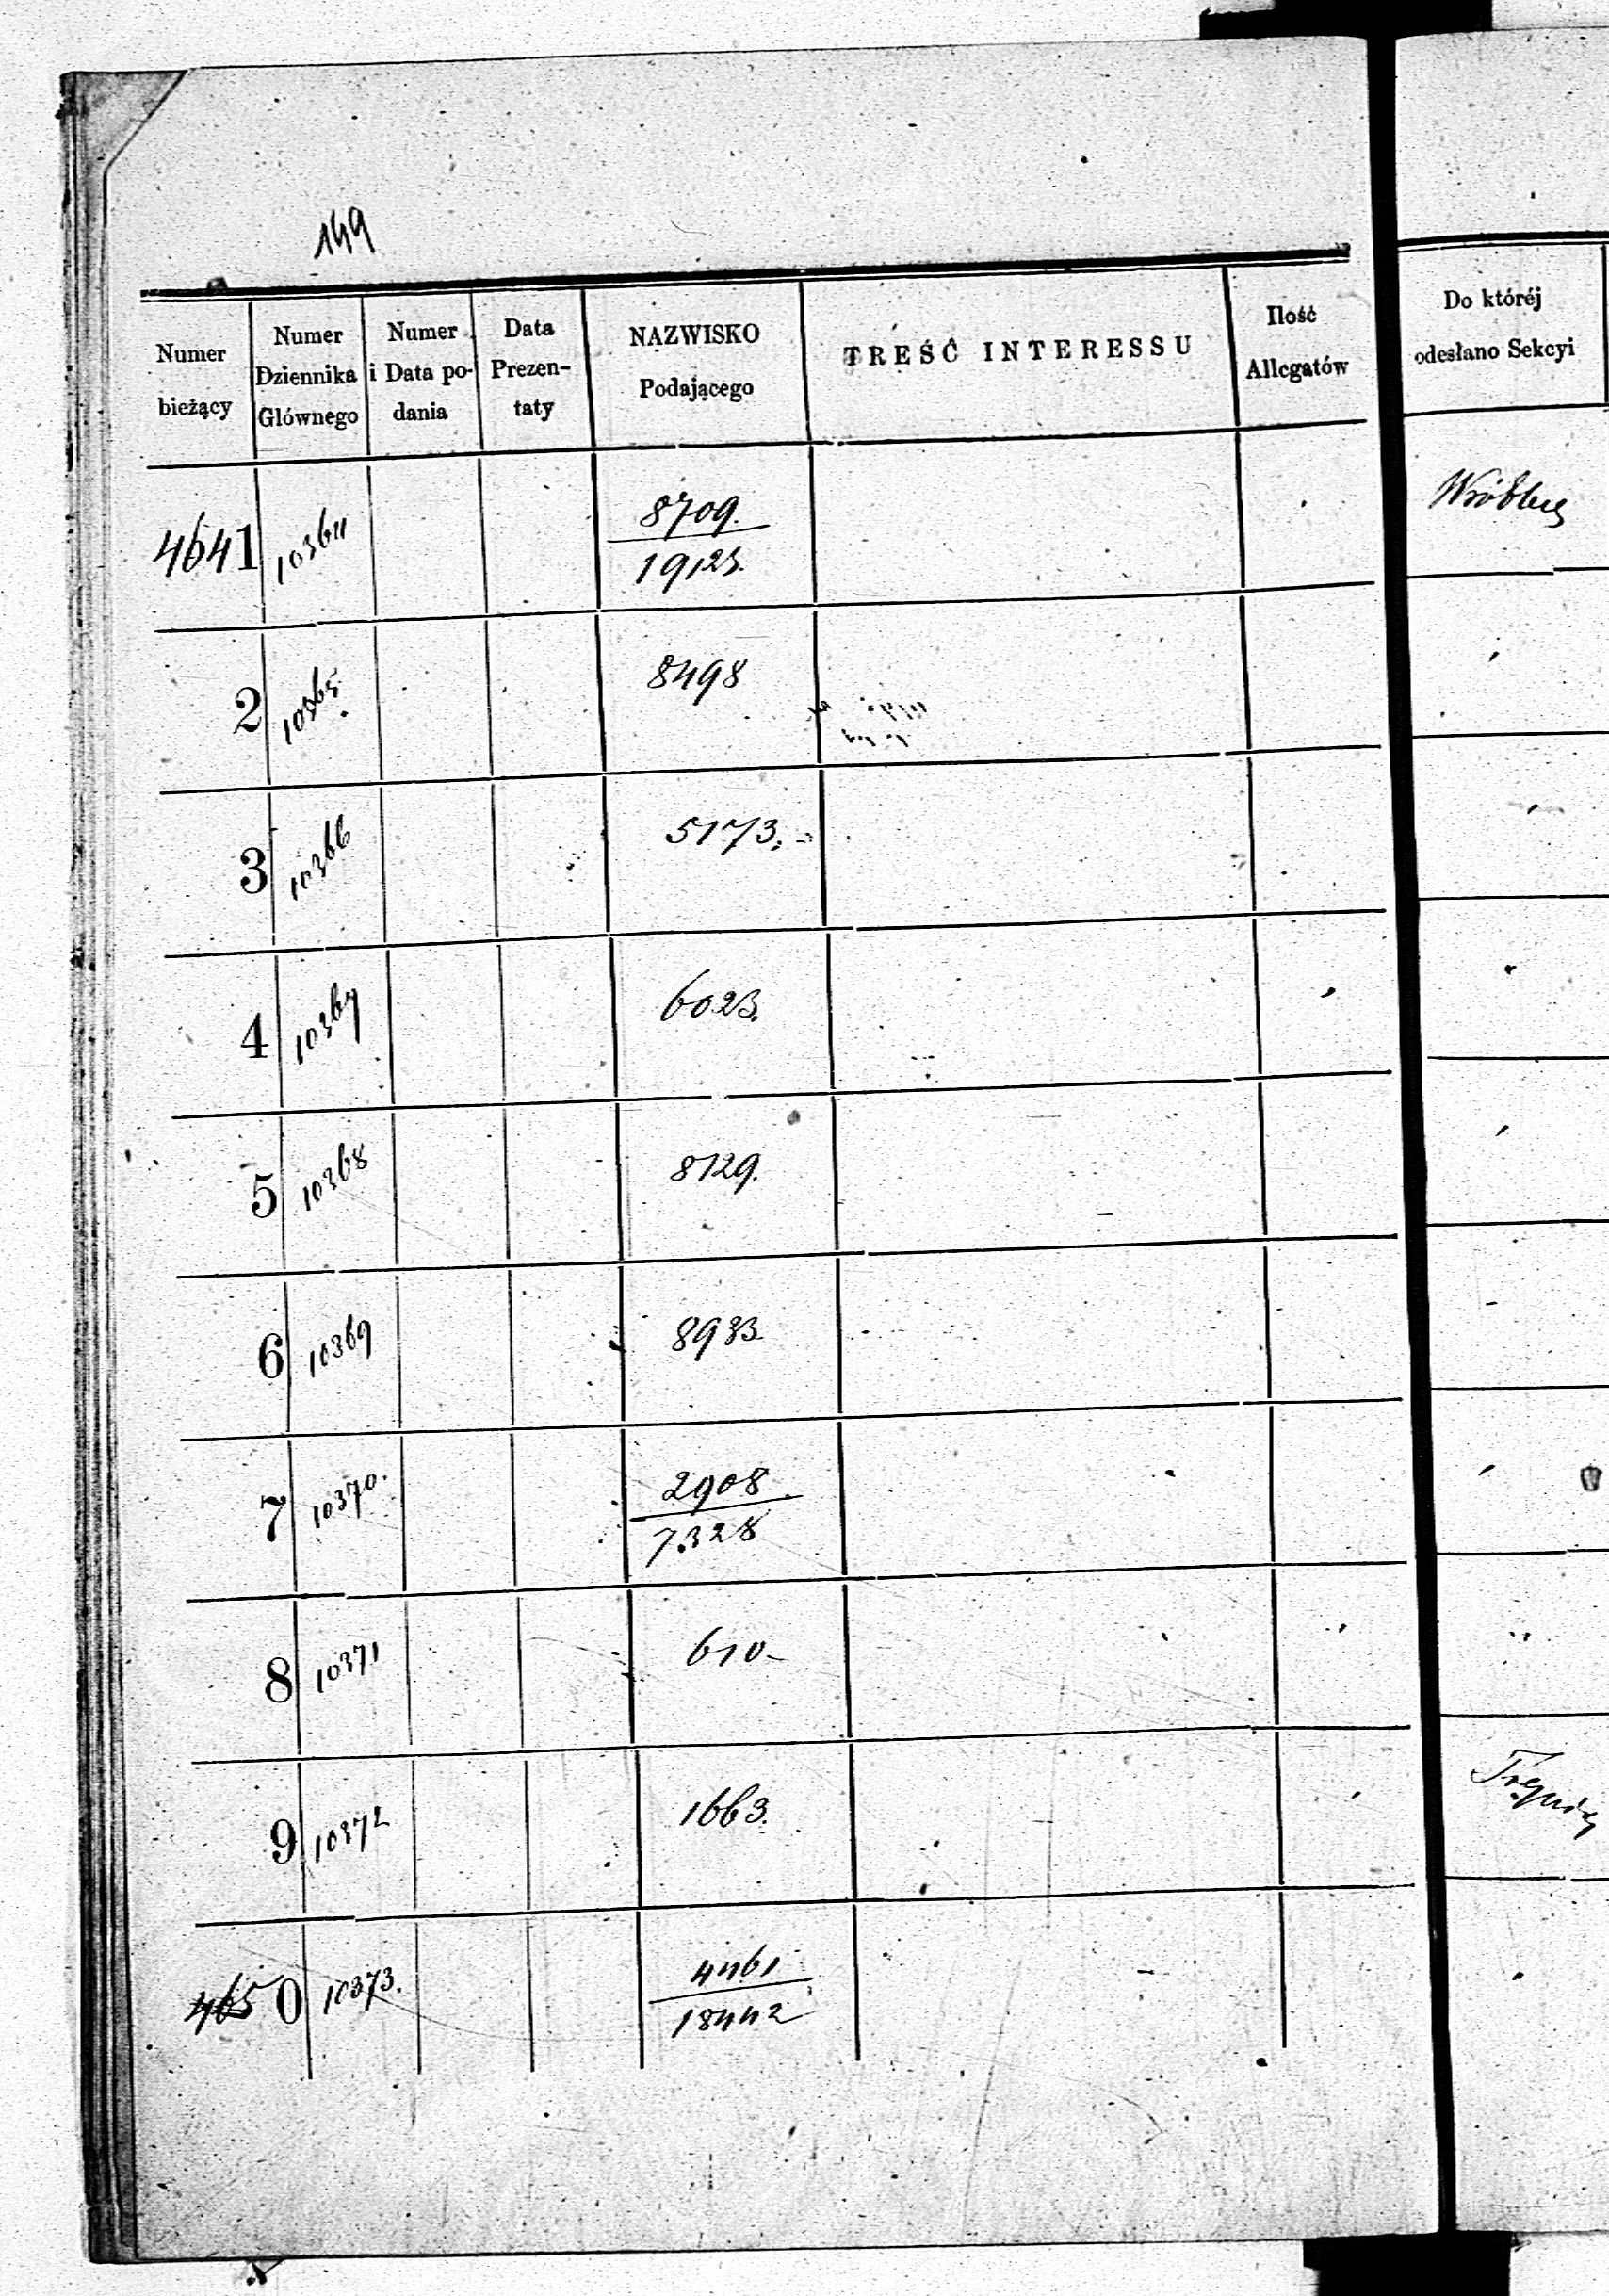 149
Numer bieżący
Numer Dziennika Głównego
Numer i Data podania
Data Prezentaty
NAZWISKO Podającego
TREŚĆ INTERESSU
Ilość Allegatów
Do któréj odesłano Sekcyi
4641 10364 8709.
19123.
2 10365 8498
3 10366 5173.
4 10367 6023.
5 10368 8129.
6 10369 8933
7 10370. 2908
7328
8 10371 610
9 10372 1663.
4650 10373. 4461
18442